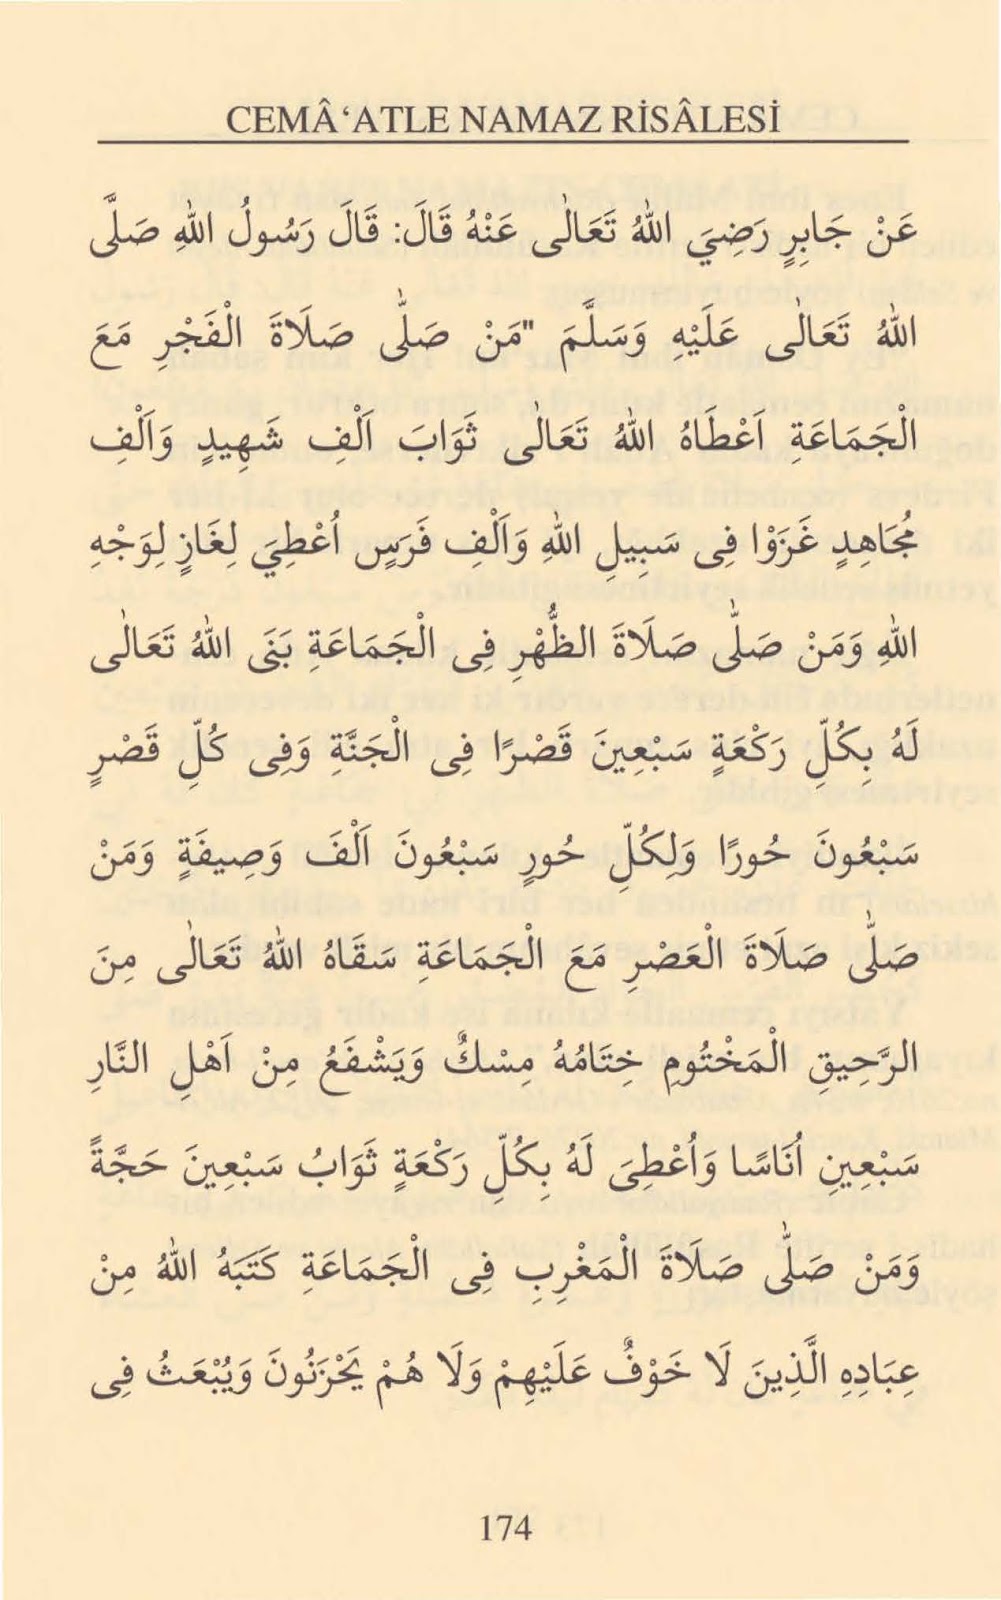 CEMÂ‘ATLE NAMAZ RİSÂLESİ
عَنْ جَابِرٍ رَضِيَ اللهُ تَعَالٰى عَنْهُ قَالَ: قَالَ رَسُولُ اللهِ صَلَّى
اللهُ تَعَالٰى عَلَيْهِ وَسَلَّمَ "مَنْ صَلّٰى صَلَاةَ الْفَجْرِ مَعَ
الْجَمَاعَةِ اَعْطَاهُ اللهُ تَعَالٰى ثَوَابَ اَلْفِ شَهِيدٍ وَاَلْفِ
مُجَاهِدٍ غَزَوْا فِى سَبِيلِ اللهِ وَاَلْفِ فَرَسٍ اُعْطِيَ لِغَازٍ لِوَجْهِ
اللهِ وَمَنْ صَلّٰى صَلَاةَ الظُّهْرِ فِى الْجَمَاعَةِ بَنَى اللهُ تَعَالٰى
لَهُ بِكُلِّ رَكْعَةٍ سَبْعِينَ قَصْرًا فِى الْجَنَّةِ وَفِى كُلِّ قَصْرٍ
سَبْعُونَ حُورًا وَلِكُلِّ حُورٍ سَبْعُونَ اَلْفَ وَصِيفَةٍ وَمَنْ
صَلّٰى صَلَاةَ الْعَصْرِ مَعَ الْجَمَاعَةِ سَقَاهُ اللهُ تَعَالٰى مِنَ
الرَّحِيقِ الْمَخْتُومِ خِتَامُهُ مِسْكٌ وَيَشْفَعُ مِنْ اَهْلِ النَّارِ
سَبْعِينِ اُنَاسًا وَاُعْطِىَ لَهُ بِكُلِّ رَكْعَةٍ ثَوَابُ سَبْعِينَ حَجَّةً
وَمَنْ صَلّٰى صَلَاةَ الْمَغْرِبِ فِى الْجَمَاعَةِ كَتَبَهُ اللهُ مِنْ
عِبَادِهِ الَّذِينَ لَا خَوْفٌ عَلَيْهِمْ وَلَا هُمْ يَحْزَنُونَ وَيُبْعَثُ فِى
174